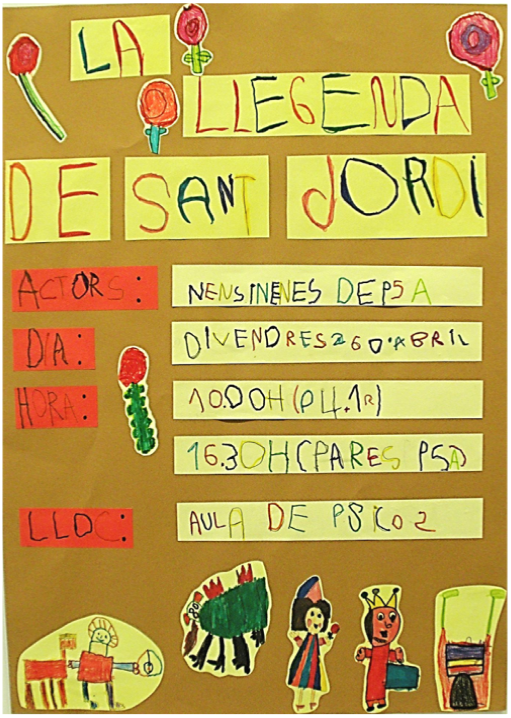 LA
LLEGENDA
DE SANT JORDI
ACTORS: NENS I NENES DE P5 A
DIA: DIVENDRES 26 D'ABRIL
HORA: 10.00H (P4.1R)
16.30H (PARES P5A)
LLOC: AULA DE PSICO 2